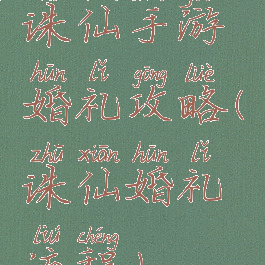 诛仙手游
hūn lǐ gōng lüè
婚礼攻略(
zhū xiān hūn lǐ
诛仙婚礼
liú chéng
流程)